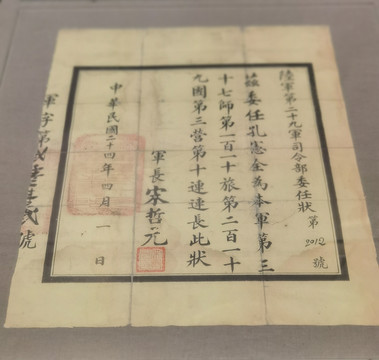 陸軍第二十九軍司令部委任狀 第2012號
茲委任孔憲全為本軍第三
十七師第一百一十旅第二百一十
九團第三營第十連連長此狀
軍長 宋哲元
中華民國二十四年四月一日
軍字第號